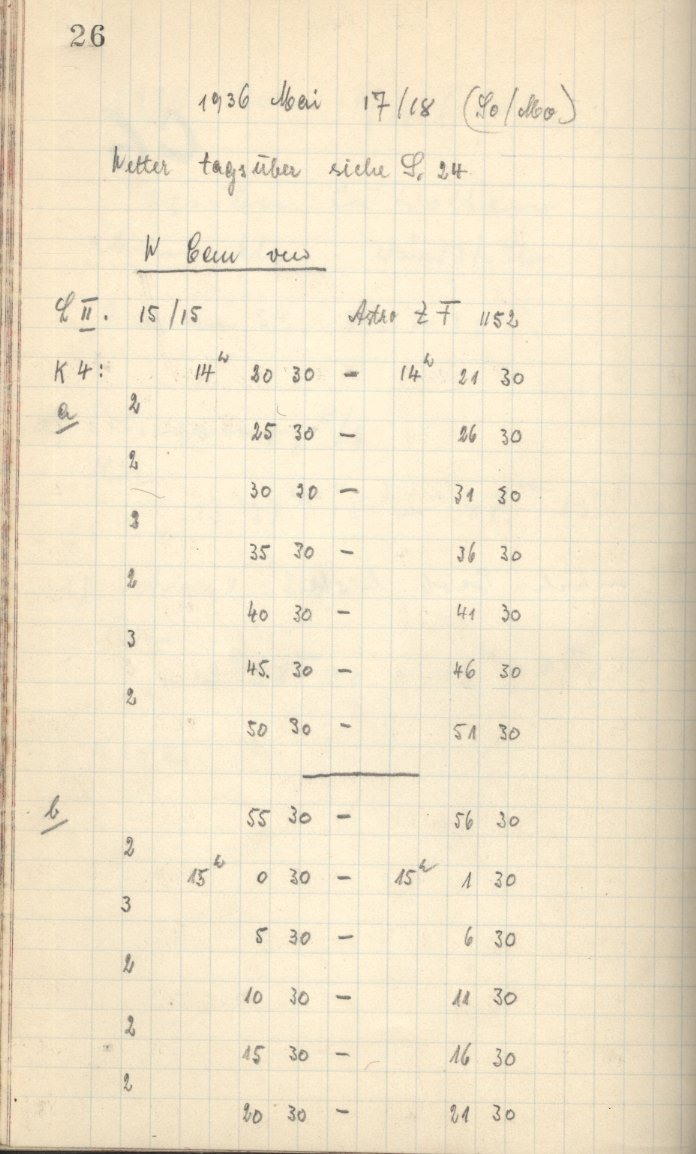 26
1936 Mai 17/18 (So/Mo)
Wetter tagsüber siehe S. 24
W Cam ven
L II. 15/15 Astro Z F 1152
K 4: 14h 20 30 - 14h 21 30
a 2
25 30 - 26 30
2
30 20 - 31 30
3
35 30 - 36 30
2
40 30 - 41 30
3
45. 30 - 46 30
2
50 30 - 51 30
b 55 30 - 56 30
2
15h 0 30 - 15h 1 30
3
5 30 - 6 30
2
10 30 - 11 30
2
15 30 - 16 30
2
20 30 - 21 30